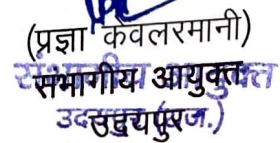 (प्रज्ञा केवलरमानी)
संभागीय आयुक्त
उदयपुर
संभागीय आयुक्त
उदयपुर (राज.)